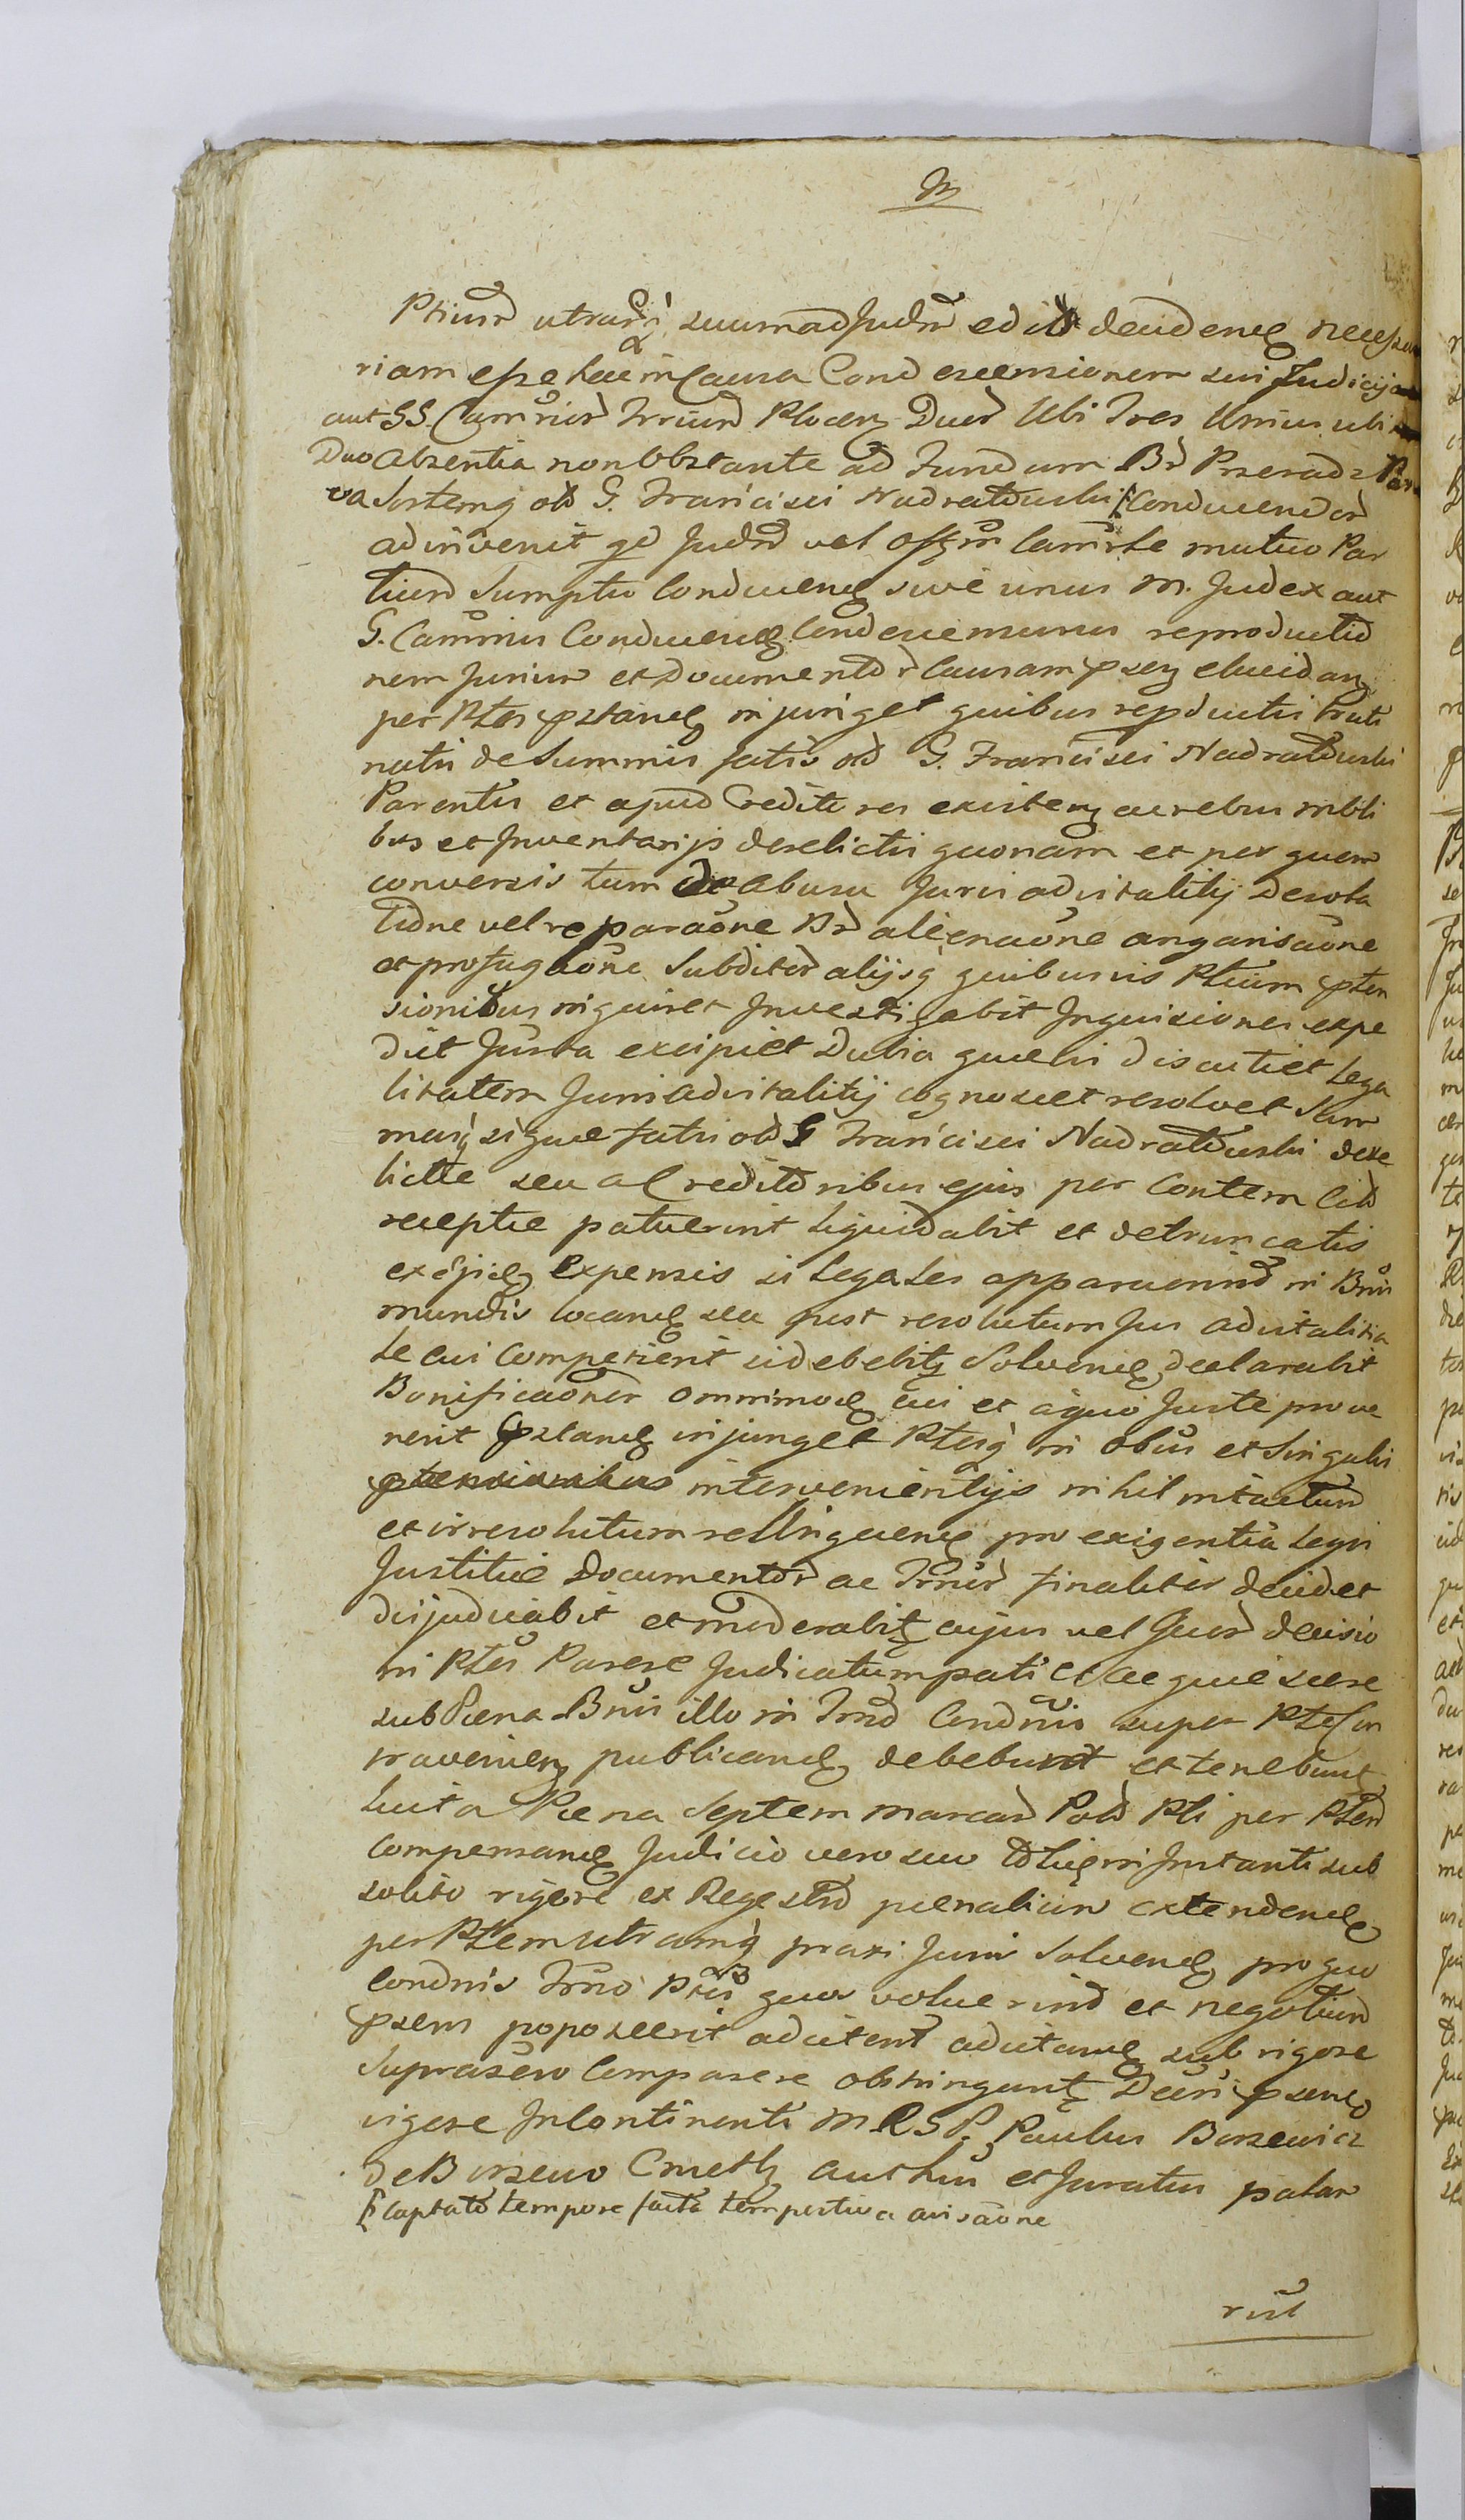 M
Ptium utrarq; suum ad Judm ed decidend necessa
riam esse hac in Causa Condescensionem sui Judicij
aut SS. Camrior Trrium Plocen Duor Ubi Tres Unius ubi
Duo absentia non obstante ad Fundum Br Pszeradz Par
va Sortemq old G. Francisci Nadratowski [Conducendor
adinvenit qd Judm vel Offm Camrle mutuo Par
tium Sumptu Conducend sive unus M. Judex aut
G. Camrius Conducend Condescensurus reproductio
nem Jurium et Documentor Causam psen elucidan
per Ptes pstand injunget quibus repductis Truti
natis de Summis fatis old G. Francisci Nadratowski
Parentis et apud Creditores existen ac rebus mbli
bus et Inventarijs derelictis quonam et per quem
conversis tum de abusu Juris advitalitij Desola
tione vel reparaone Br alienaone angarisaone
et profugaone Subditor alijsq quibusvis Ptium pten
sionibus inquiret Investigabit Inquisiones expe
diet Jurta excipiet Dubia quaevis discutiet Lega
litatem Juris advitalitij cognoscet resolvet Sum
masq; si quae fatis old G Francisci Nadratowski dere
lictae seu a Creditoribus ejus per Contem Cit
receptae patuerint Liquidabit et detruncatis
expensis si Legales apparuerint in Bnis
mundis locand seu post resolutum Jus advitalita
te cui Competient sid debebit Solvend declarabit
Bonificaones omnimod cui et a quo Juste prove
nerit pstand injunget Ptesq in obus et Singulis
ptensionibus intervenientijs nihil intactum
et irresolutum relinquend pro exigentia Legis
Justitiae Documentor ac Trrior finaliter decidet
dijudicabit et moderabit cujus vel Quor decisio
ni Ptes Parere Judicatum pati et acquiescere
sub Paena Bnis illo in Trno Condnis super Pte Con
travenien publicand debebunt et tenebunt
Luita Paena Septem marcar Pol Pti per Ptem
Compensand Judicio vero suo in Instanti sub
solito rigore ex Regestro paenalium extendend
per Ptem utramq praxi Juris Solvend pro quo
Condnis Trno Ptes quos voluerint et negotium
psens poposcerit adcitent adcitand sub rigore
Suprascro Comparere obstringunt Decri psens
vigore Incontinenti MRSP. Paulus Borzewicz
de Borzewo authus et Juratus palam
[captato tempore facta tempestiva avisaone
rist